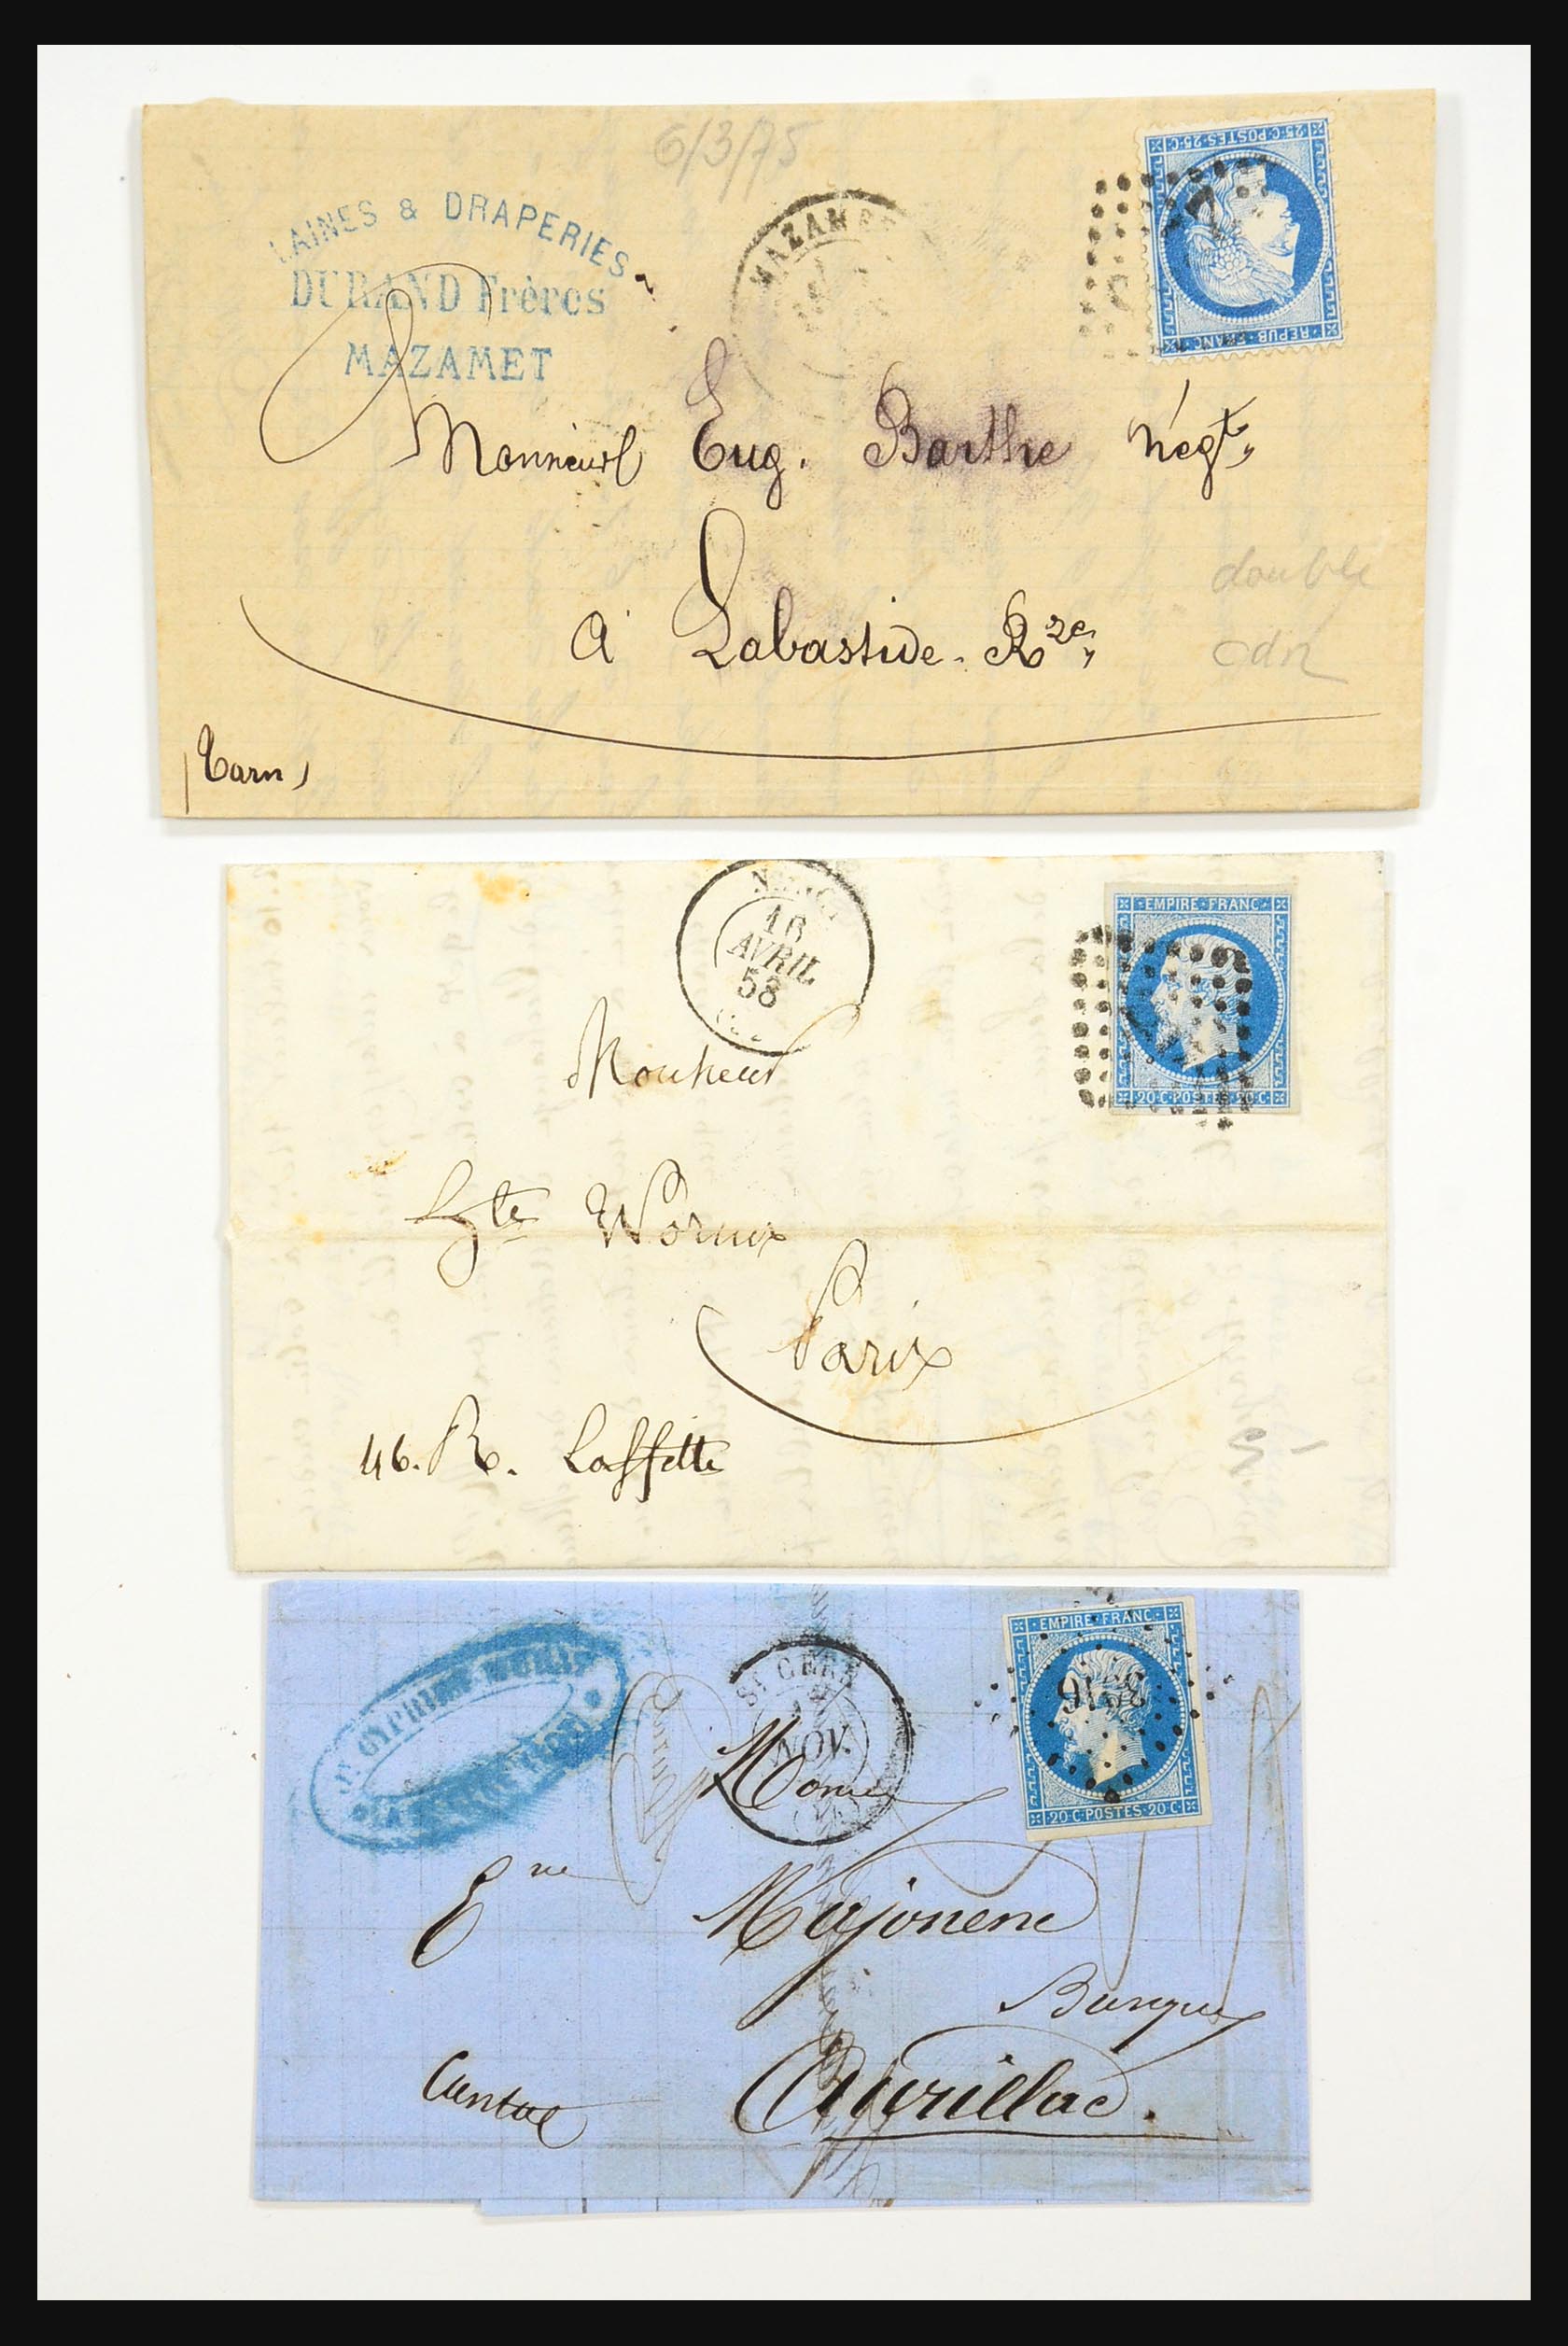 6/3/75
LAINES & DRAPERIES
DURAND Frères
MAZAMET
MAZAMET
25·C·POSTES·25·C
REPUB·FRANC·
Monsieur Eug. Barthe négt
à Labastide-Rze
double
cdn
(Tarn)
16
AVRIL
58
EMPIRE·FRANC·
20·C·POSTES·20·C·
Monsieur
Hte Worms
Paris
46. R. Laffitte
ST CERÉ
NOV.
EMPIRE·FRANC·
20·C·POSTES·20·C·
Majonene
Banque
Aurillac.
Cantal